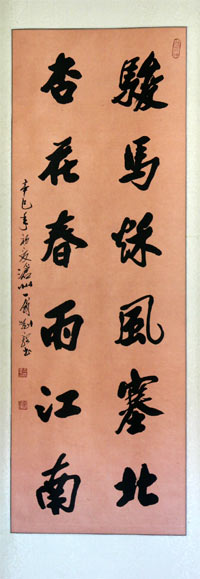 駿馬秌風塞北
杏花春雨江南
辛巳年